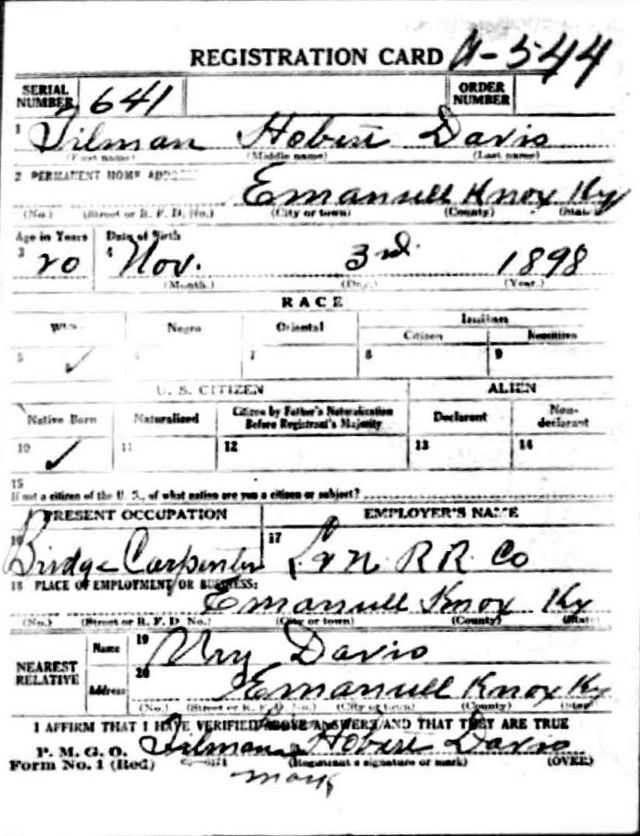 REGISTRATION CARD A-544
SERIAL NUMBER 641 ORDER NUMBER
1 Tilman Hobert Davis
(First name) (Middle name) (Last name)
2 PERMANENT HOME ADDRESS
Emanuell Knox Ky
(No.) (Street or R. F. D. No.) (City or town) (County) (State)
Age in Years Date of Birth
3 20 4 Nov. 3rd. 1898
(Month.) (Day.) (Year.)
RACE
White Negro Oriental Indian
Citizen Noncitizen
5 ✓ 6 7 8 9
U. S. CITIZEN ALIEN
Native Born Naturalized Citizen by Father's Naturalization Before Registrant's Majority Declarant Non-declarant
10 ✓ 11 12 13 14
15
If not a citizen of the U. S., of what nation are you a citizen or subject?
PRESENT OCCUPATION EMPLOYER'S NAME
16 Bridge Carpenter 17 L & N. R R. Co
18 PLACE OF EMPLOYMENT OR BUSINESS:
Emanuell Knox Ky
(No.) (Street or R. F. D. No.) (City or town) (County) (State)
NEAREST RELATIVE Name 19 Ury Davis
Address 20 Emanuell Knox Ky
(No.) (Street or R. F. D. No.) (City or town) (County) (State)
I AFFIRM THAT I HAVE VERIFIED ABOVE ANSWERS AND THAT THEY ARE TRUE
P. M. G. O.
Form No. 1 (Red) Tilman Hobert Davis
(Registrant's signature or mark) (OVER)
mark